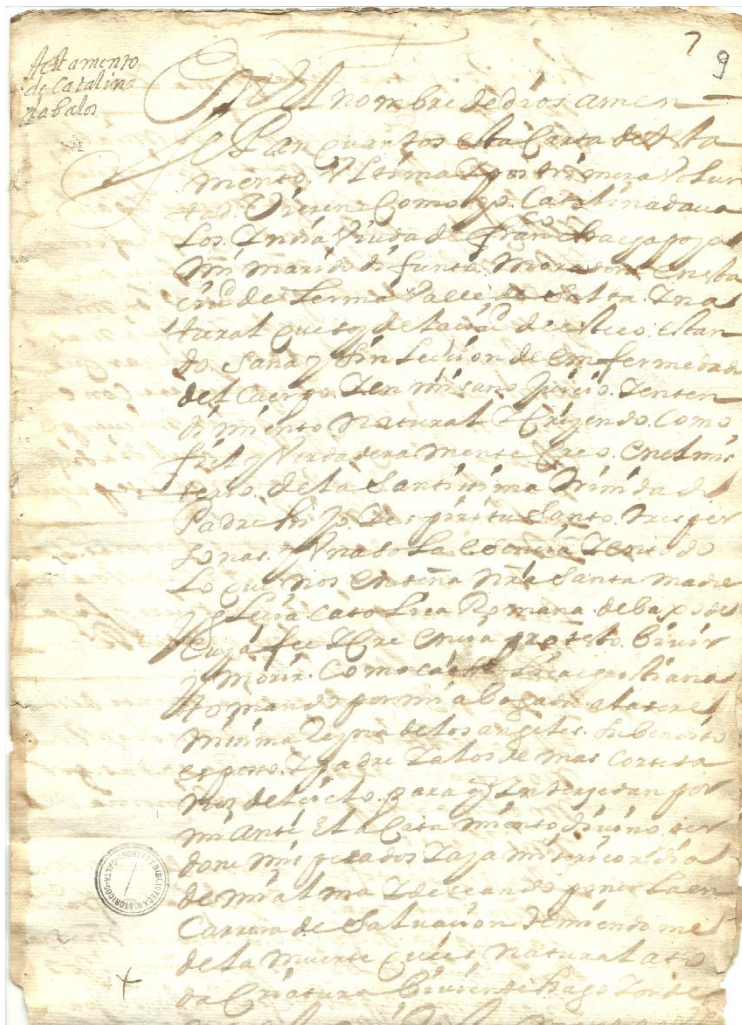 testamento
de Catalina
nabalos
7 9
En El nombre de dios amen
Sepan quantos esta Carta de testa
mento Ultima y postrimera Volun
tad Vieren Como yo Catalina dava
los India Viuda de Franco
mi marido difunto moradora en esta
ciud de Lerma Valle de Salta Ina
tural que soy de la ciud de esteco estan
do sana y sin Lecion de emfermedad
del Cuerpo Y en mi sano Juicio Y enten
dimiento natural Creyendo Como
fiel y Verdadera mente Creo en el mis
terio de la Santissima Trinidad
Padre hijo Y espiritu Santo tres per
sonas y Una sola esencia Y en todo
Lo que nos enseña nra Santa madre
yglecia Catolica Romana debaxo de
Cuya fee Y Creencia protesto Bivir
y Morir Como catolica cristiana
tomando por mi abogada a la cere
nicima Reyna de los angeles Su bendito
esposo Y padre Y a los demas Cortesa
nos del cielo para q Interzedan por
mi ante El a Cata miento divino per
done mis pecados Y aya misericordia
de mi alma Y deseando ponerla en
Carrera de Salvacion temiendome
de la muerte que es natural a to
da Criatura Biviente hago Y orde
ARCHIVO Y BIBLIOTECA HISTORICOS SALTA